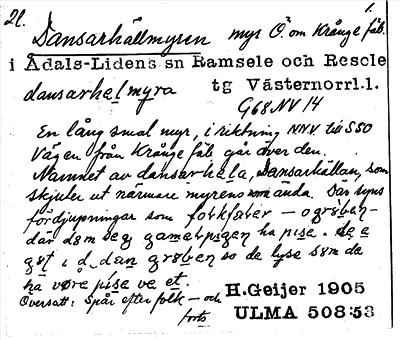 21. 1.
Dansarhällmyren myr Ö. om Krånge fäb.
i Ådals-Lidens sn Ramsele och Resele
dansarhelmyra tg Västernorrl.l.
G68 NV 14
En lång smal myr, i riktning NNV till SSO
Vägen från Krånge fäb går över den.
Namnet av dansarhela, Dansarhällan, som
skjuter ut närmare myrens ända. Där syns
fördjupningar som fotkfäter — o grøben-
där dem se
i d dan grøben so de lyse sem de
ha vøre pise ve et.
Översatt: Spår efter folk — och
forts
H.Geijer 1905
ULMA 508:53